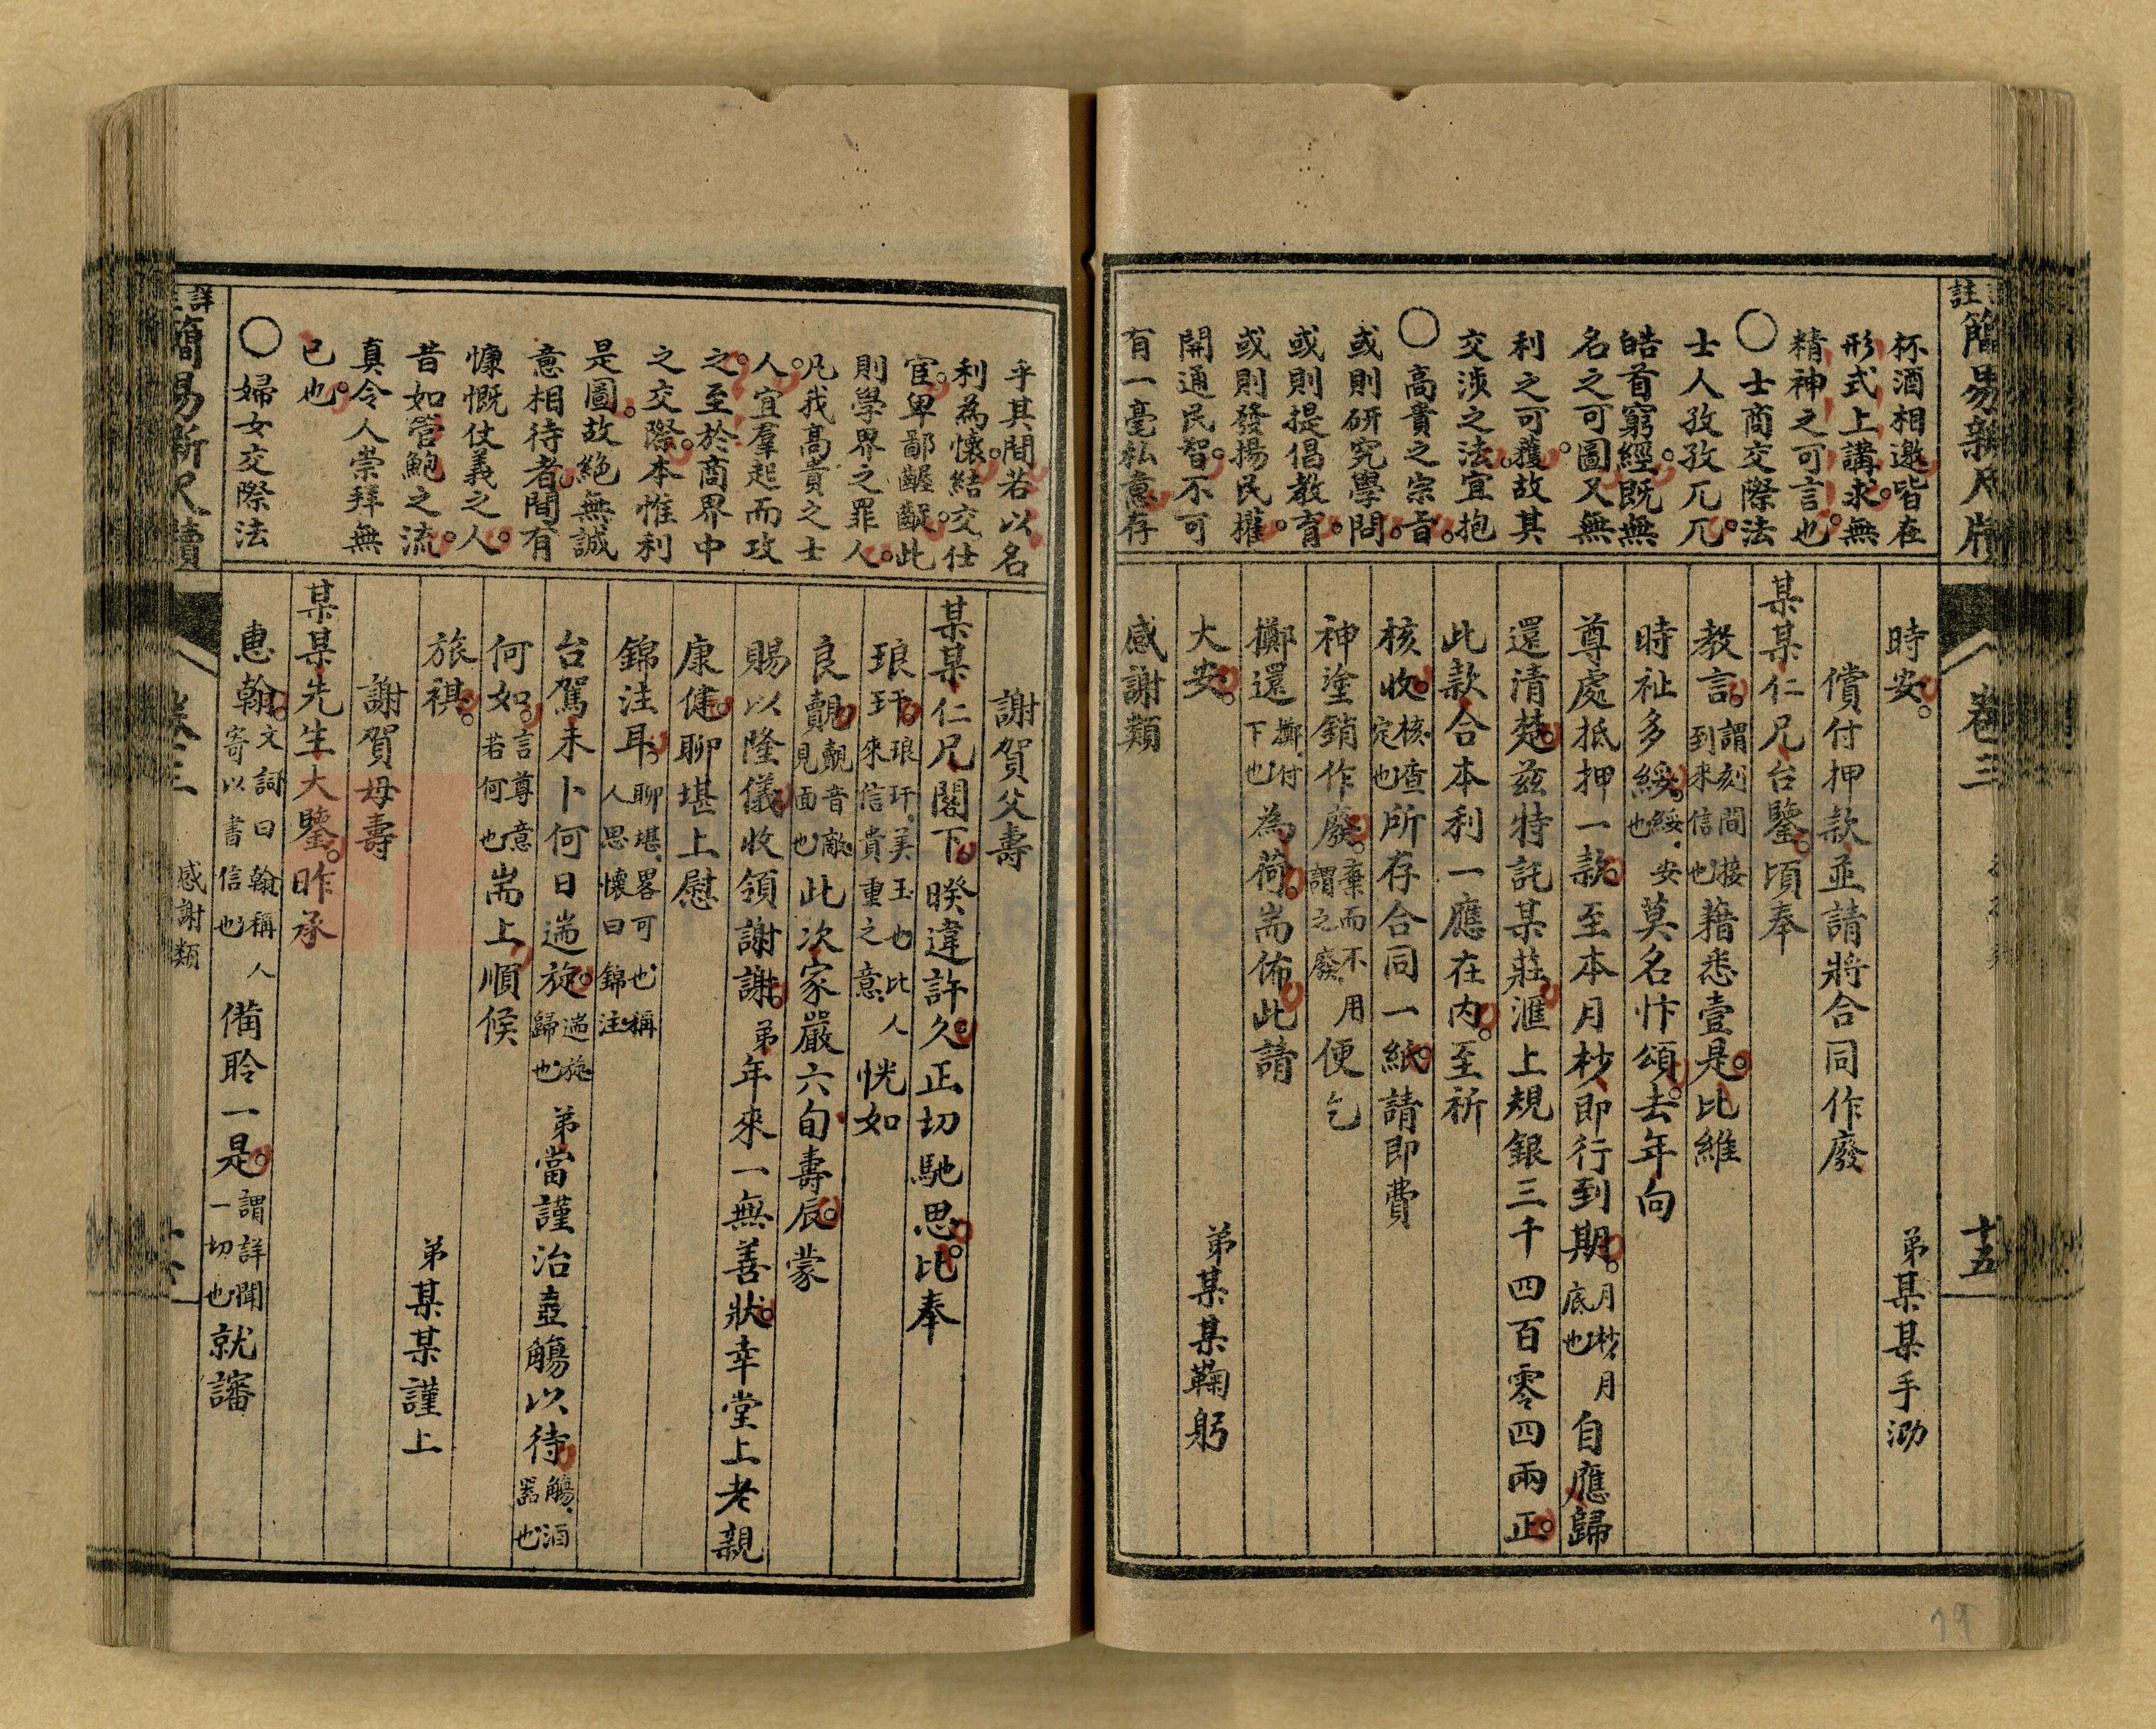 註簡易新尺牘
卷三
十五
杯酒相邀皆在
形式上講求無
精神之可言也
〇士商交際法
士人孜孜兀兀
皓首窮經既無
名之可圖又無
利之可獲故其
交涉之法宜抱
〇高貴之宗旨
或則研究學問
或則提倡教育
或則發揚民權
開通民智不可
有一毫私意存
時安
弟某某手泐
償付押款並請將合同作廢
某某仁兄台鑒頃奉
教言謂刻間接到來信也藉悉壹是比維
時祉多綏綏安也莫名忭頌去年向
尊處抵押一款至本月杪即行到期月杪月底也自應歸
還清楚茲特託某莊滙上規銀三千四百零四兩正
此款合本利一應在内至祈
核收核查定也所存合同一紙請即費
神塗銷作廢棄而不用謂之廢便乞
擲還擲付下也為荷耑佈此請
大安
弟某某鞠躬
感謝類
乎其間若以名
利為懷結交仕
宦卑鄙齷齪此
則學界之罪人
凡我高貴之士
人宜羣起而攻
之至於商界中
之交際本惟利
是圖故絕無誠
意相待者間有
慷慨仗義之人
昔如管鮑之流
真令人崇拜無
已也
〇婦女交際法
謝賀父壽
某某仁兄閣下睽違許久正切馳思比奉
琅玕琅玕美玉也比人來信貴重之意恍如
良覿覿音敵見面也此次家嚴六旬壽辰蒙
賜以隆儀收領謝謝弟年來一無善狀幸堂上老親
康健聊堪上慰
錦注耳聊堪畧可也稱人思懷曰錦注
台駕未卜何日遄旋遄旋歸也弟當謹治壺觴以待觴酒器也
何如言尊意若何也耑上順候
旅祺
弟某某謹上
謝賀母壽
某某先生大鑒昨承
惠翰文詞曰翰稱人寄以書信也備聆一是謂詳聞一切也就諳
詳簡易新尺牘
卷三
感謝類